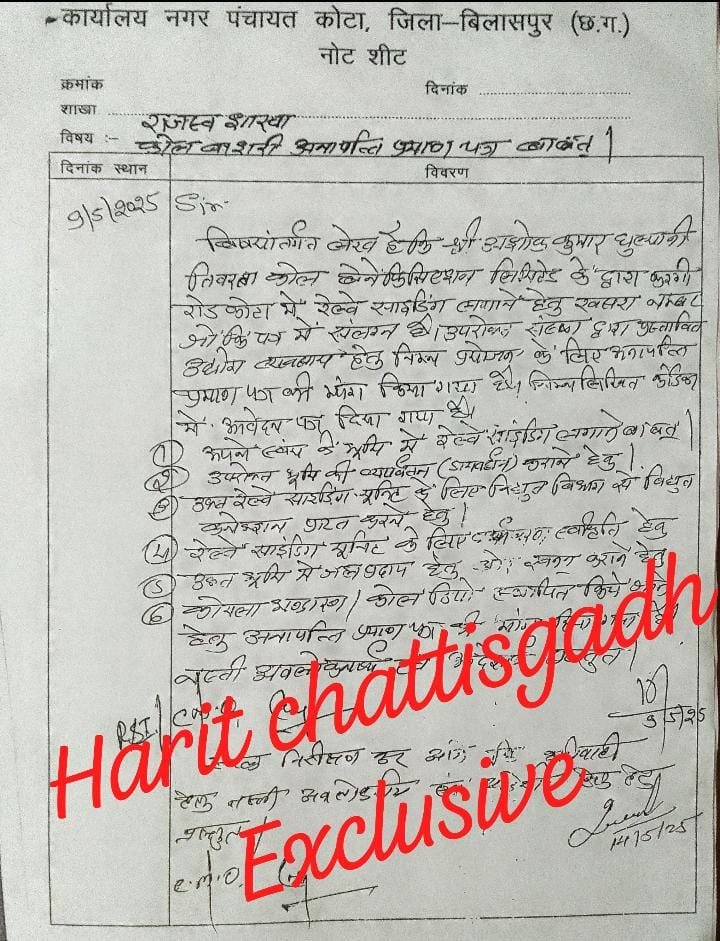 कार्यालय नगर पंचायत कोटा, जिला–बिलासपुर (छ.ग.)
नोट शीट
क्रमांक
दिनांक
शाखा राजस्व शाखा
विषय :- कोल वाशरी अनापत्ति प्रमाण पत्र बाबत्।
दिनांक स्थान विवरण
9/5/2025 Sir
विषयांतर्गत लेख है कि श्री अशोक कुमार
कोल बेनेफिसिएशन लिमिटेड के द्वारा करगी
रोड कोटा में रेल्वे साइडिंग लगाने हेतु खसरा नम्बर
जो कि पत्र में संलग्न है। उपरोक्त संस्था द्वारा प्रस्तावित
उद्योग व्यवसाय हेतु निम्न प्रयोजन के लिए अनापत्ति
प्रमाण पत्र की मांग किया गया है। निम्न लिखित कंडिका
में आवेदन पत्र दिया गया है।
① अपने स्वयं की भूमि में रेल्वे साइडिंग लगाने बाबत्।
② उपरोक्त भूमि की व्यपवर्तन (डायवर्सन) कराने हेतु।
③ उक्त रेल्वे साइडिंग यूनिट के लिए विद्युत विभाग से विद्युत
कनेक्शन प्राप्त करने हेतु।
④ रेल्वे साइडिंग यूनिट के लिए पर्यावरण स्वीकृति हेतु
⑤ उक्त भूमि में जल प्रदाय हेतु खनन कराने हेतु
⑥ कोयला भण्डारण / कोल डिपो स्थापित किये जाने
हेतु अनापत्ति प्रमाण पत्र की मांग किया गया है।
नस्ती अवलोकनार्थ एवं आदेशार्थ प्रस्तुत।
RSI
9/5/25
निरीक्षण कर कार्यवाही
हेतु नस्ती हेतु
प्रस्तुत।
14/5/25
C.M.O.
Harit chattisgadh
Exclusive